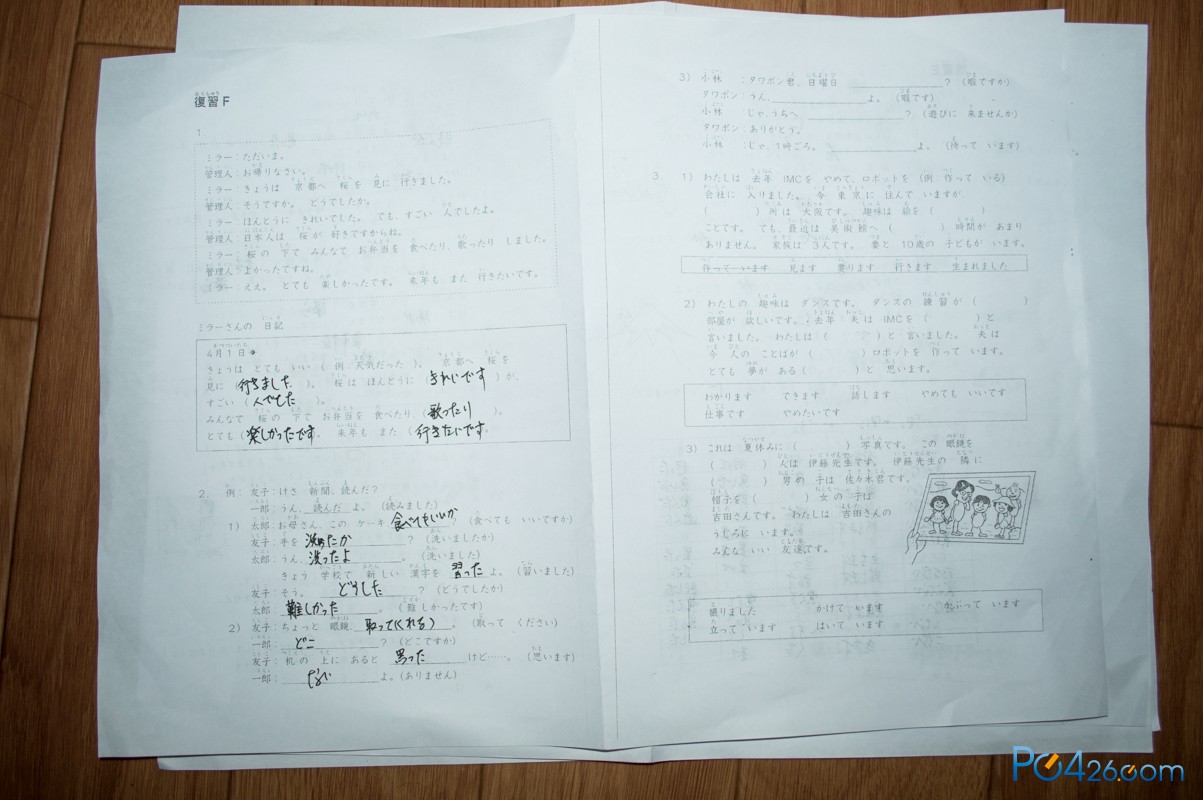 復習F
1.
ミラー：ただいま。
管理人：お帰りなさい。
ミラー：きょうは 京都へ 桜を 見に 行きました。
管理人：そうですか。 どうでしたか。
ミラー：ほんとうに きれいでした。 でも、すごい 人でしたよ。
管理人：日本人は 桜が 好きですからね。
ミラー：桜の 下で みんなで お弁当を 食べたり、歌ったり しました。
管理人：よかったですね。
ミラー：ええ。 とても 楽しかったです。 来年も また 行きたいです。
ミラーさんの 日記
4月1日
きょうは とても いい (例 天気だった)。 京都へ 桜を
見に (行きました)。 桜は ほんとうに (きれいです)が、
すごい (人でした)。
みんなで 桜の 下で お弁当を 食べたり、(歌ったり)。
とても (楽しかったです。 来年も また (行きたいです。
2.
例：友子：けさ 新聞、読んだ？
一郎：うん、読んだ よ。 (読みました)
1) 太郎：お母さん、この ケーキ 食べてもいいか？ (食べても いいですか)
友子：手を 洗ったか？ (洗いましたか)
太郎：うん、洗ったよ。 (洗いました)
きょう 学校で 新しい 漢字を 習ったよ。 (習いました)
友子：そう。 どうした？ (どうでしたか)
太郎：難しかった。 (難しかったです)
2) 友子：ちょっと 眼鏡、取って(くれる)。 (取って ください)
一郎：どこ？ (どこですか)
友子：机の 上に あると 思った けど……。 (思います)
一郎：ない よ。(ありません)
3) 小林 ：タワポン君、日曜日 ？ (暇ですか)
タワポン：うん、 よ。 (暇です)
小林 じゃ、うちへ ？ (遊びに 来ませんか)
タワポン：ありがとう。
小林 ：じゃ、1時ごろ。 よ。 (待って います)
3. 1) わたしは 去年 IMCを やめて、ロボットを (例 作って いる)
会社に 入りました。 今 東京に 住んで いますが、
( ) 所は 大阪です。 趣味は 絵を ( )
ことです。 でも、最近は 美術館へ ( ) 時間が あまり
ありません。 家族は 3人です。 妻と 10歳の 子どもが います。
作って います 見ます 要ります 行きます 生まれました
2) わたしの 趣味は ダンスです。 ダンスの 練習が ( )
部屋が 欲しいです。 去年 夫は IMCを ( ) と
言いました。 わたしは ( ) と 言いました。 夫は
今 人の ことばが ( ) ロボットを 作って います。
とても 夢が ある ( ) と 思います。
わかります できます 話します やめても いいです
仕事です やめたいです
3) これは 夏休みに ( ) 写真です。 この 眼鏡を
( ) 人は 伊藤先生です。 伊藤先生の 隣に
( ) 男の 子は 佐々木君です。
帽子を ( ) 女の 子は
吉田さんです。 わたしは 吉田さんの
うしろに います。
みんな いい 友達です。
撮りました かけて います かぶって います
立って います はいて います
PC426.com